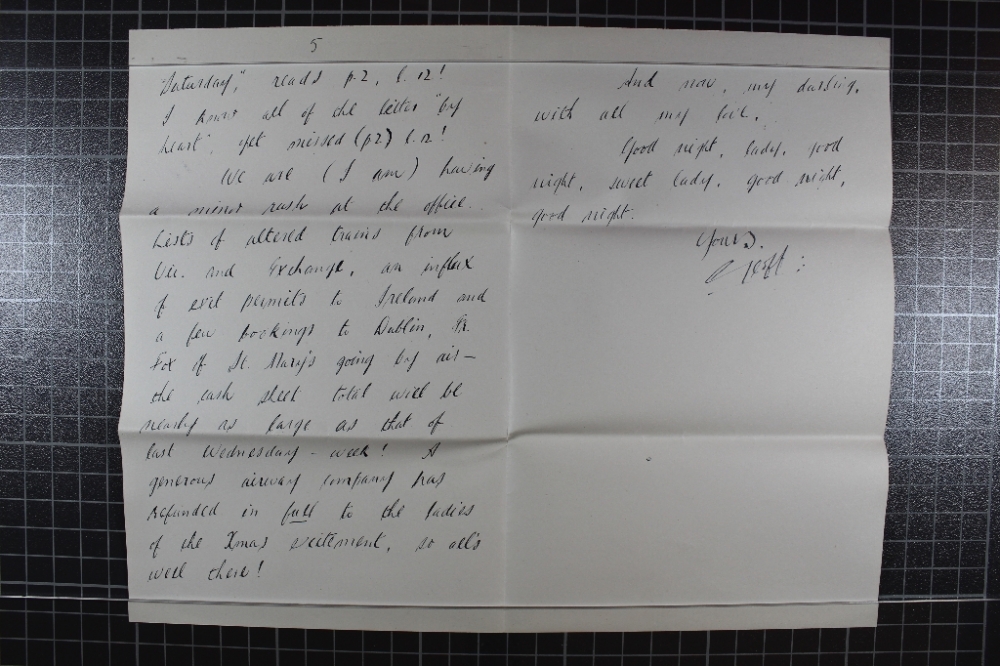 5
"Saturday," reads p.2, l.12!
I know all of the letter "by
heart", yet missed (p2) l.12!
We are (I am) having
a minor rush at the office.
Lists of altered trains from
Vic. and Exchange, an influx
of exit permits to Ireland and
a few bookings to Dublin, Fr.
Fox of St. Mary's going by air—
the cash sheet total will be
nearly as large as that of
last Wednesday - week! A
generous airway company has
refunded in full to the ladies
of the Xmas excitement, so all's
well there!
And now, my darling,
with all my love.
Good night, lady, good
night, sweet lady, good night,
good night.
Yours,
Geoff: